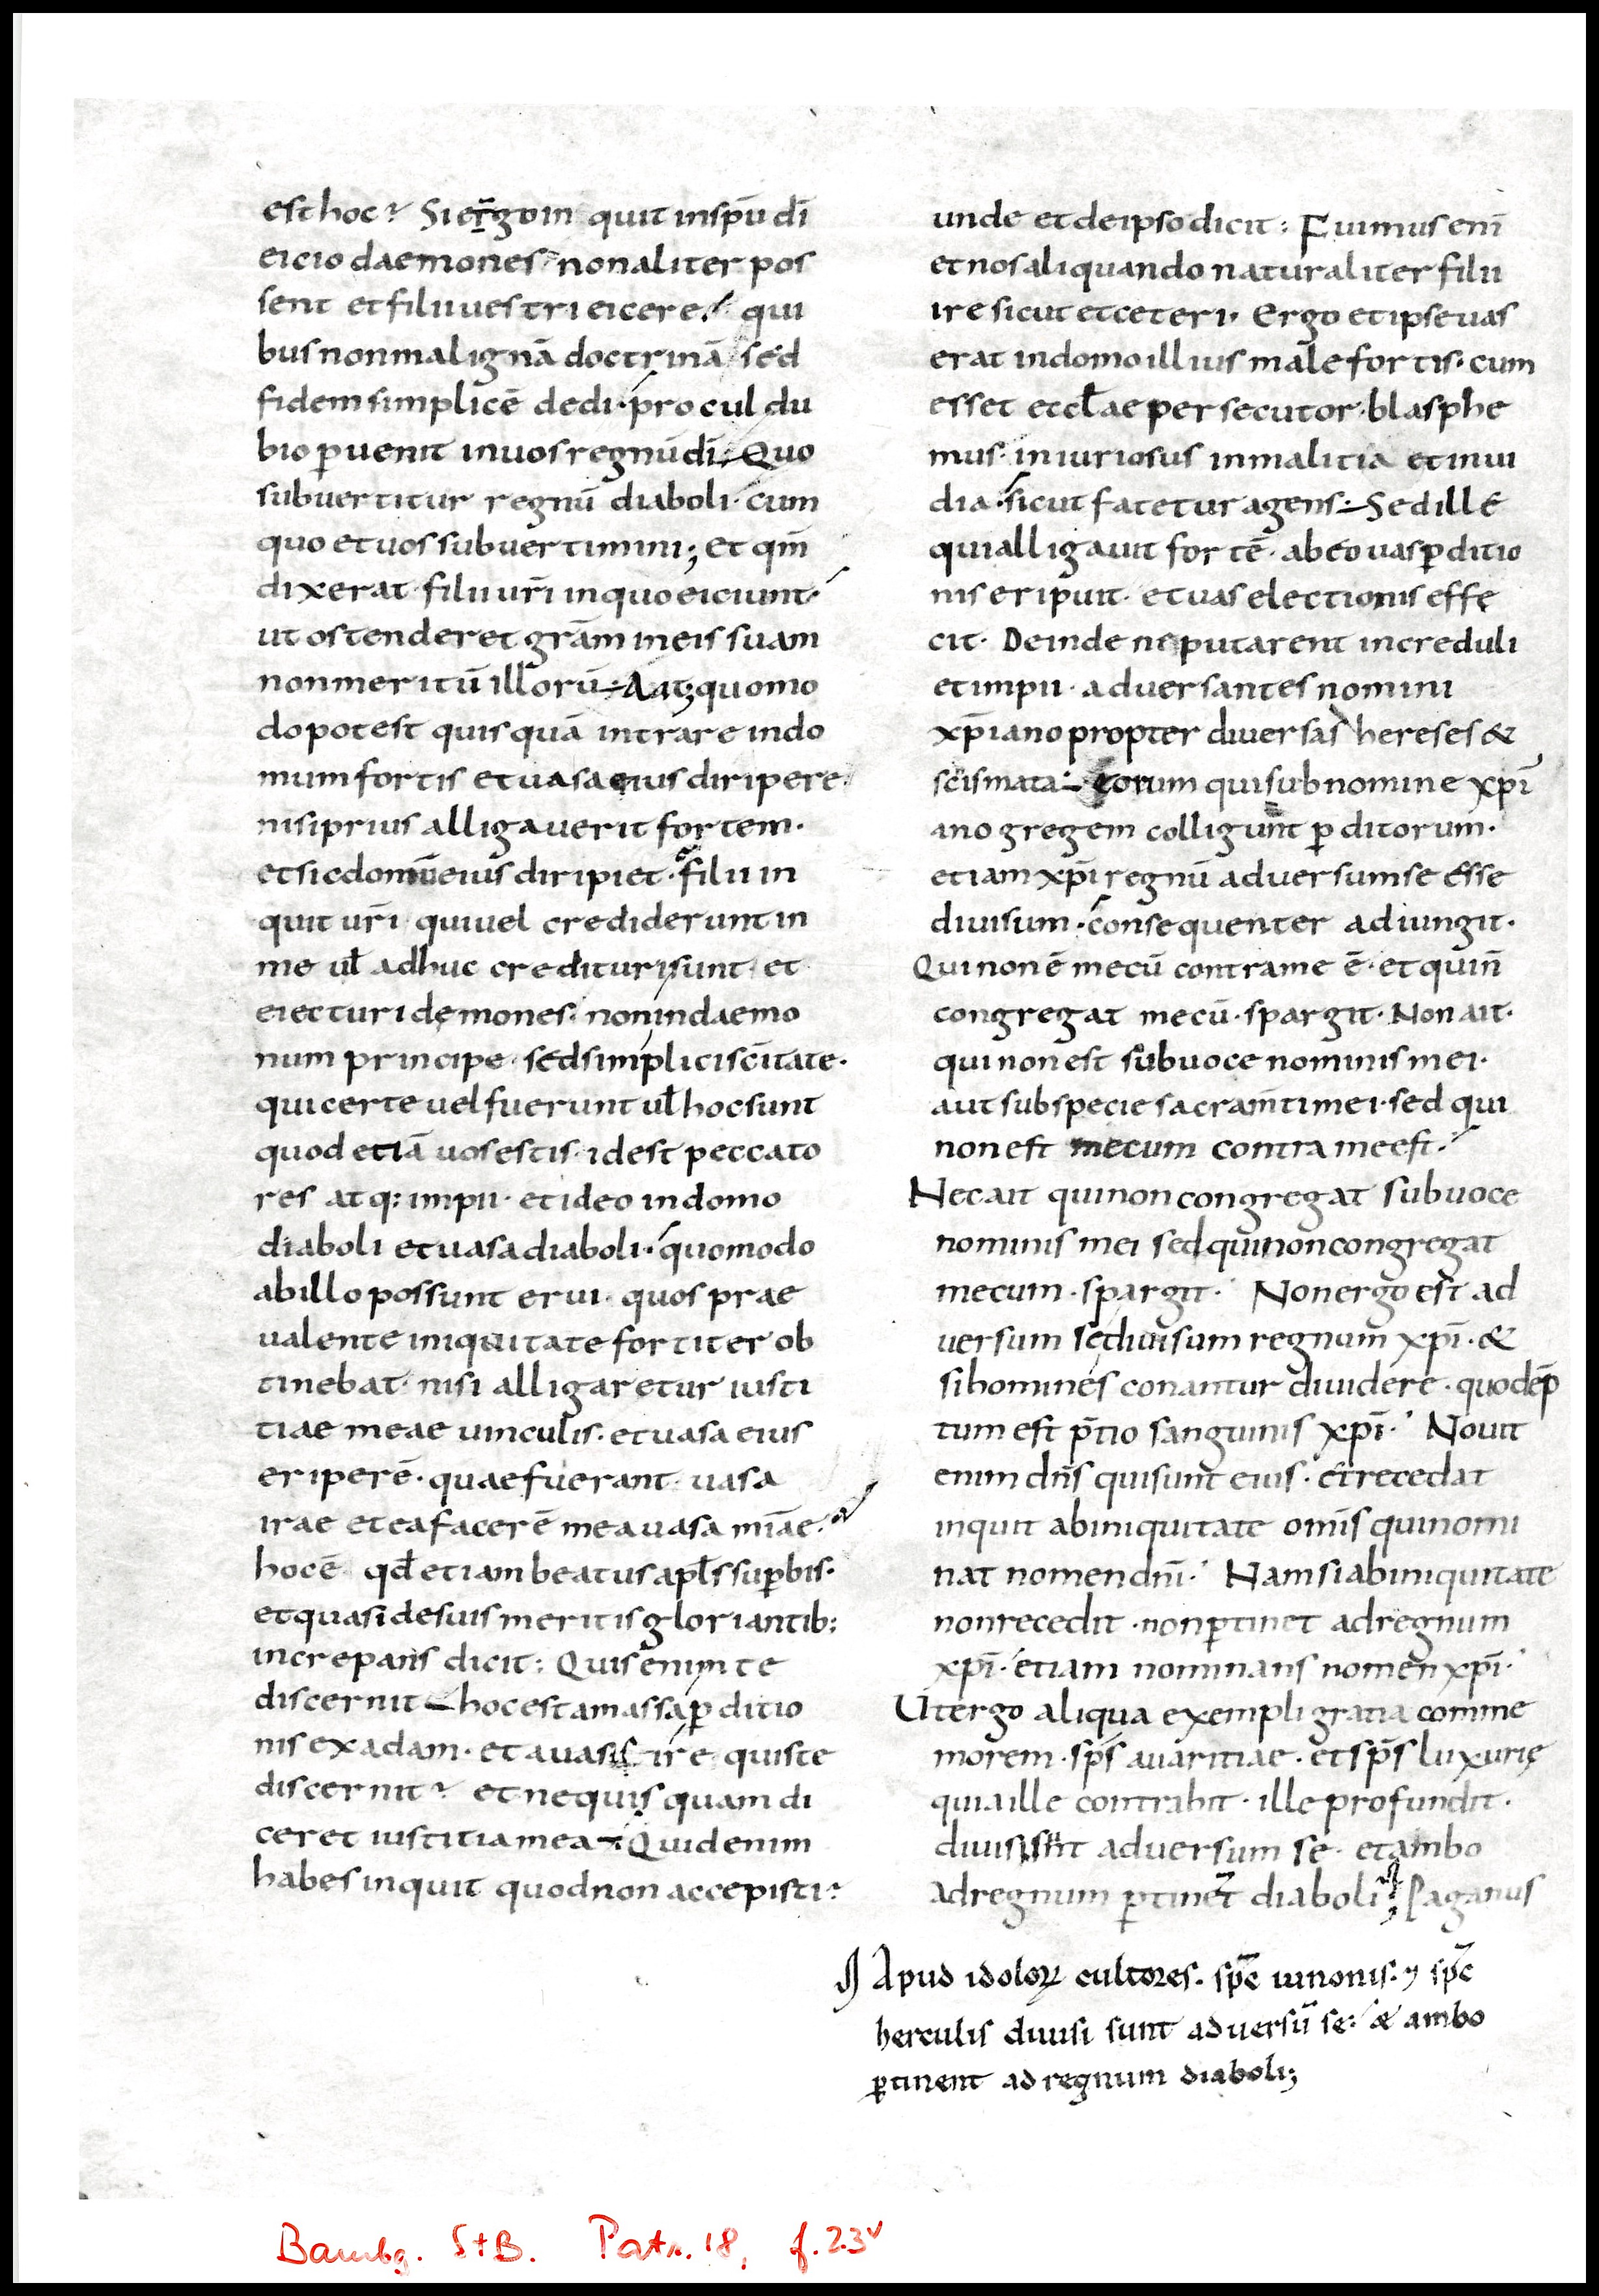 est hoc? Si ergo in quit in sp̄u dī
eicio daemones non aliter pos
sent et filii uestri eicere. qui
bus non malignā doctrinā sed
fidem simplicē dedi. pro cul du
bio ꝑuenit in uos regnū dī. Quo
subuertitur regnū diaboli. cum
quo et uos subuertimini; et qm̄
dixerat. filii ur̄i in quo eiciunt.
ut ostenderet grām in eis suam
non meritū illorū. Ait; quomo
do potest quisquā intrare in do
mum fortis et uasa eius diripere
nisi prius alligauerit fortem.
et sic domū eius diripiet. filii in
quit ur̄i qui uel crediderunt in
me ul̄ adhuc credituri sunt et
eiecturi dęmones. non in daemo
num principe. sed simplici sc̄itate.
qui certe uel fuerunt ul̄ hoc sunt
quod etiā uos estis. id est peccato
res atq: impii. et ideo in domo
diaboli et uasa diaboli. quomodo
ab illo possunt erui. quos prae
ualente iniquitate fortiter ob
tinebat. nisi alligaretur iusti
tiae meae uinculis. et uasa eius
eriperē. quae fuerant uasa
irae et ea facerē mea uasa miāe.
hoc ē qd̄ etiam beatus apl̄s suꝑbis.
et quasi de suis meritis gloriantib;
increpans dicit: Quis enim te
discernit hoc est a massa ꝑditio
nis ex adam. et a uasis ire quis te
discernit? et ne quis quam di
ceret iustitia mea. Quid enim
habes inquit quod non accepisti?
unde et de ipso dicit: Fuimus eni̅
et nos aliquando naturaliter filii
ire sicut et ceteri. Ergo et ipse uas
erat in domo illius male fortis. cum
esset eccl̄ae persecutor. blasphe
mus. iniuriosus in malitia et inui
dia. sicut fatetur agens. Sed ille
qui alligauit fortē. ab eo uas ꝑditio
nis eripuit. et uas electionis effe
cit. Deinde ne putarent increduli
et impii. aduersantes nomini
xp̄iano propter diuersas hereses &
scismata. eorum qui sub nomine xp̄i
ano gregem colligunt ꝑditorum.
etiam xp̄i regnū aduersum se esse
diuisum. consequenter adiungit.
Qui non ē mecū contra me ē. et qui n̄
congregat mecū. spargit. Non ait.
qui non est sub uoce nominis mei.
aut sub specie sacram̄ti mei. sed qui
non est mecum contra me est.
Nec ait qui non congregat sub uoce
nominis mei sed qui non congregat
mecum. spargit. Non ergo est ad
uersum se diuisum regnum xp̄i. &
si homines conantur diuidere. quod ēp̄
tum est p̄tio sanguinis xp̄i. Nouit
enim dn̄s qui sunt eius. Et recedat
inquit ab iniquitate omīs qui nomi
nat nomen dn̄i. Nam si ab iniquitate
non recedit. non ꝑtinet ad regnum
xp̄i. etiam nominans nomen xp̄i.
Ut ergo aliqua exempli gratia comme
morem. sp̄s auaritiae. et sp̄s luxurię
quia ille contrahit. ille profundit.
diuisi sūt aduersum se. et ambo
ad regnum ꝑtinēt diaboli; Paganus
Apud idoloꝝ cultores. sp̄c iunonis. ⁊ sp̄c
herculis diuisi sunt aduersū se: & ambo
ꝑtinent ad regnum diaboli;
Bambg. StB. Patr. 18, f. 23v